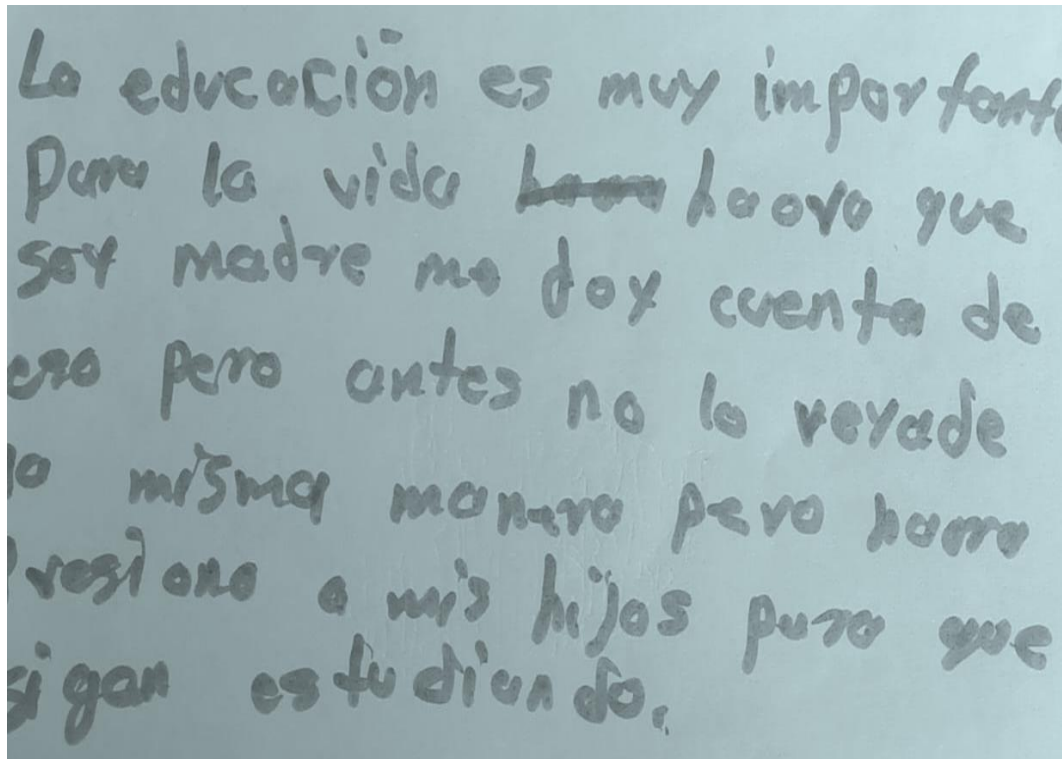 La educación es muy importante
Para la vida haora que
soy madre me doy cuenta de
eso pero antes no lo veyade
la misma manera pero harra
Presiono a mis hijos para que
sigan estudiando.